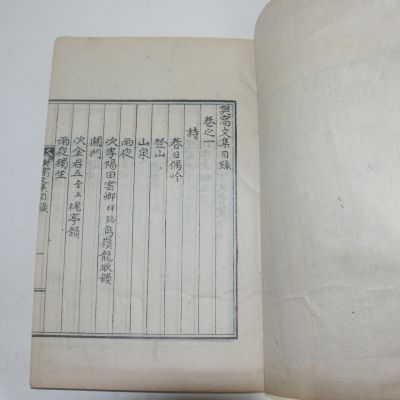 巽窩文集目錄
卷之一
詩
春日偶吟
登山
山泉
雨夜
次李陽田雲卿祥鎬鳥嶺龍湫韻
關門
次金君五五槐亭韻
雨夜獨坐
巽窩文集目錄 一